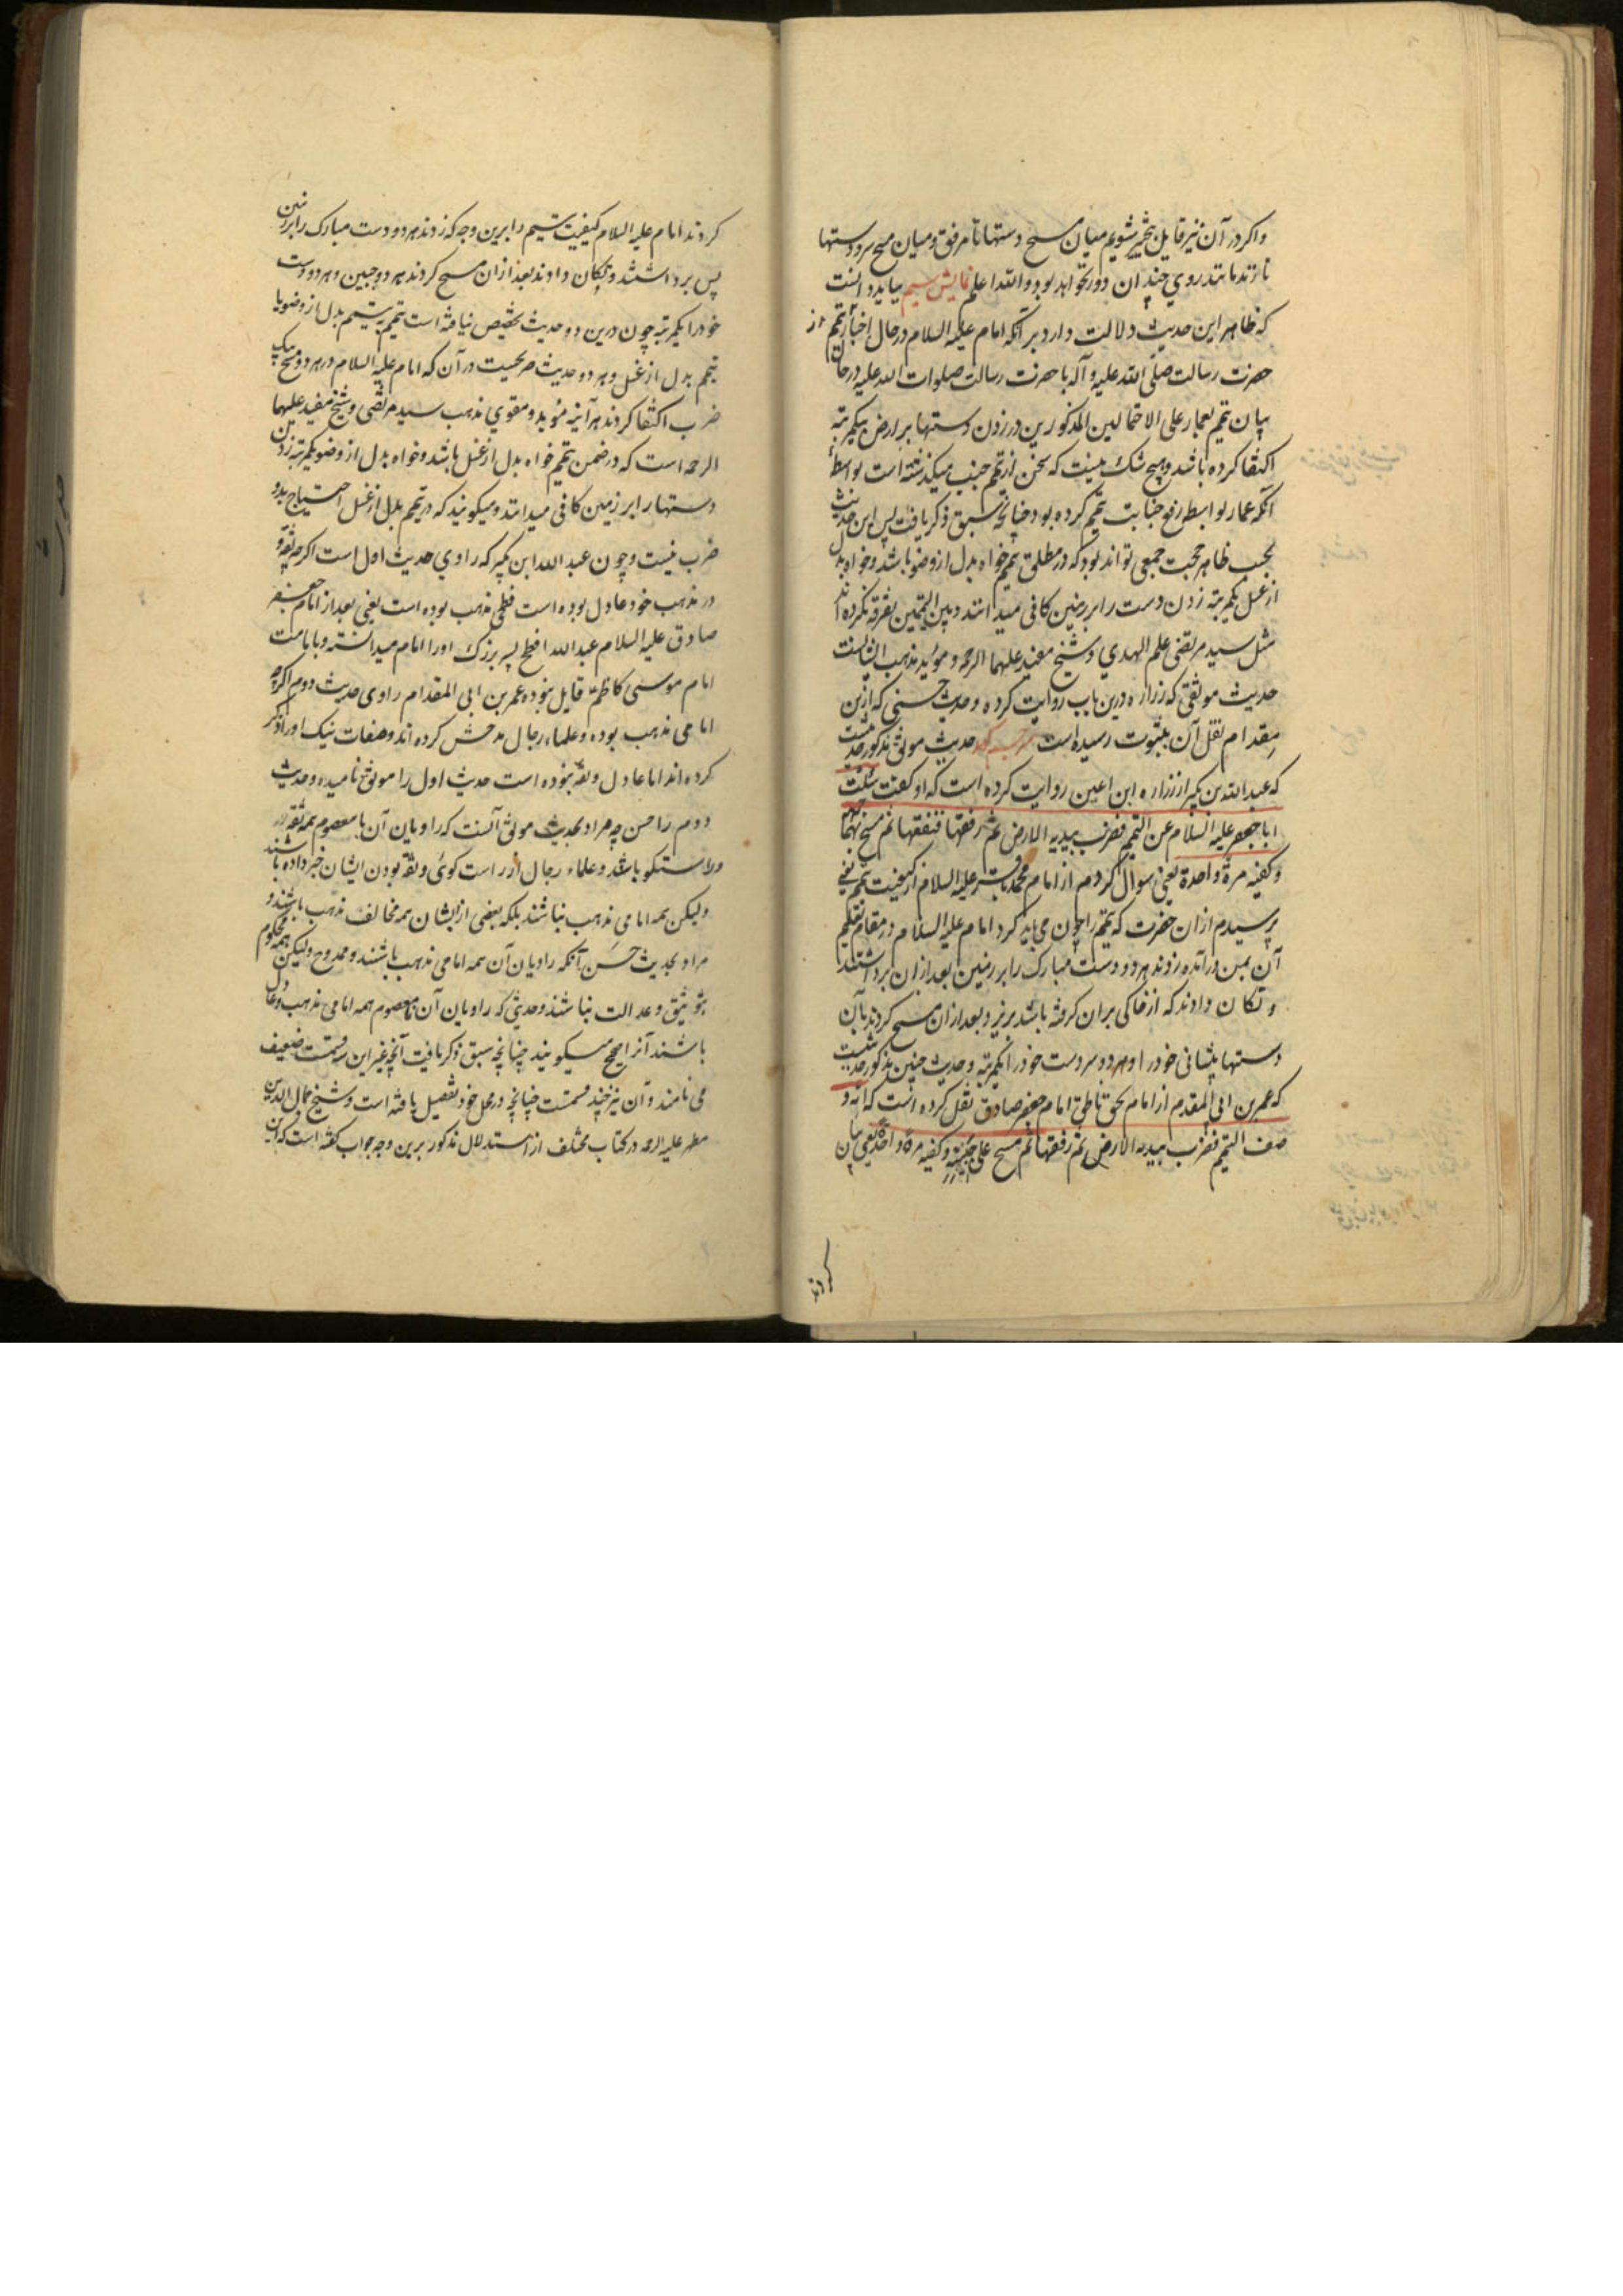 واکر در آن نیز قایل بتخییر شویم میان مسح دستها تا مرفق و میان مسح سر دستها
تا زند مانند روی چندان دور نخواهد بود و الله اعلم نمایش سیم بباید دانست
که ظاهر این حدیث دلالت دارد بر آنکه امام علیه السلام در حال اخبار تیمم از
حضرت رسالت صلی الله علیه و آله یا حضرت رسالت صلوات الله علیه در حال
بیان تیمم بعمار علی الاحتمالین المذکورین در زدن دستها بر ارض بیکمرتبه
اکتفا کرده باشد و هیچ شک نیست که سخن از تیمم جنب میکذشته است بواسطهٔ
آنکه عمار بواسطه رفع جنابت تیمم کرده بود چنانچه سبق ذکر یافت پس این حدیث
بحسب ظاهر حجت جمعی تواند بود که در مطلق تیمم خواه بدل از وضو باشد و خواه بدل
از غسل یکمرتبه زدن دست را بر زمین کافی میدانند و بین التیممین تفرقه نکرده اند
مثل سید مرتضی علم الهدی و شیخ مفید علیهما الرحمه و موئید مذهب ایشانست
حدیث موثقی که زراره درین باب روایت کرده و حدیث حسنی که از بن
مقدام نقل آن بثبوت رسیده است حدیث موثق مذکور حدیثیست
که عبدالله بن بکیر از زراره ابن اعین روایت کرده است که او کفت سئلت
ابا جعفر علیه السلام عن التیمم فضرب بیدیه الارض ثم رفعها فنفضها ثم مسح بهما جبهته
وکفیه مرة واحدة یعنی سوال کردم از امام محمد باقر علیه السلام از کیفیت تیمم یعنی
پرسیدم از ان حضرت که تیمم را چون می باید کرد امام علیه السلام در مقام تعلیم
آن بمن درآمده زدند هر دو دست مبارک را بر زمین بعد از ان برداشتند
و تکان دادند که از خاکی بران کرفته باشد بریزد و بعد از ان مسح کردند بآن
دستها پیشانی خود را و هر دو سر دست خود را یکمرتبه و حدیث حسن مذکور حدیثیست
که عمر بن ابی المقدم از امام بحق ناطق امام جعفر صادق نقل کرده است که انه و
صف التیمم فضرب بیدیه الارض ثم رفعها ثم مسح علی جبینیه و کفیه مرة واحدة یعنی بیان
کردند
کردند امام علیه السلام کیفیت تیمم را برین وجه که زدند هر دو دست مبارک را بر زمین
پس برداشتند و تکان دادند بعد از ان مسح کردند هر دو جبین و هر دو دست
خود را یکمرتبه چون درین دو حدیث تخصیص نیافته است تیمم به تیمم بدل از وضو یا
تیمم بدل از غسل و هر دو حدیث صریحیست در آن که امام علیه السلام در هر دو مسح بیک
ضرب اکتفا کردند هر آینه مؤید و مقوی مذهب سید مرتضی و شیخ مفید علیهما
الرحمه است که در ضمن تیمم خواه بدل از غسل باشد و خواه بدل از وضو یکمرتبه زدن
دستها را بر زمین کافی میدانند و میکویند که در تیمم بدل از غسل احتیاج بدو
ضرب نیست و چون عبدالله ابن بکیر که راوی حدیث اول است اکرچه ثقه و
در مذهب خود عادل بوده است فطحی مذهب بوده است یعنی بعد از امام جعفر
صادق علیه السلام عبدالله افطح پسر بزرک او را امام میدانسته و بامامت
امام موسی کاظم قایل نبوده و عمر بن ابی المقدام راوی حدیث دوم اکرچه
امامی مذهب بوده و علماء رجال مدحش کرده اند و صفات نیک او را ذکر
کرده اند اما عادل و ثقه نبوده است حدیث اول را موثق نامیده و حدیث
دوم را حسن چه مراد بحدیث موثق آنست که راویان آن تا معصوم همه ثقه
و راستکو باشد و علماء رجال از راست کوئی و ثقه بودن ایشان خبر داده باشند
ولیکن همه امامی مذهب نباشند بلکه بعضی از ایشان همه مخالف مذهب باشند و
مراد بحدیث حسن آنکه راویان آن همه امامی مذهب باشند و ممدوح ولیکن همه محکوم
بتوثیق و عدالت نباشند و حدیثی که راویان آن تا معصوم همه امامی مذهب و عادل
باشند آنرا صحیح میکویند چنانچه سبق ذکر یافت آنچه غیر این سه قسمت ضعیف
می نامند و آن نیز چند قسمت چنانچه در محل خود تفصیل یافته است و شیخ جمال الدین
مطهر علیه الرحمه در کتاب مختلف از استدلال مذکور برین وجه جواب کفته است که این